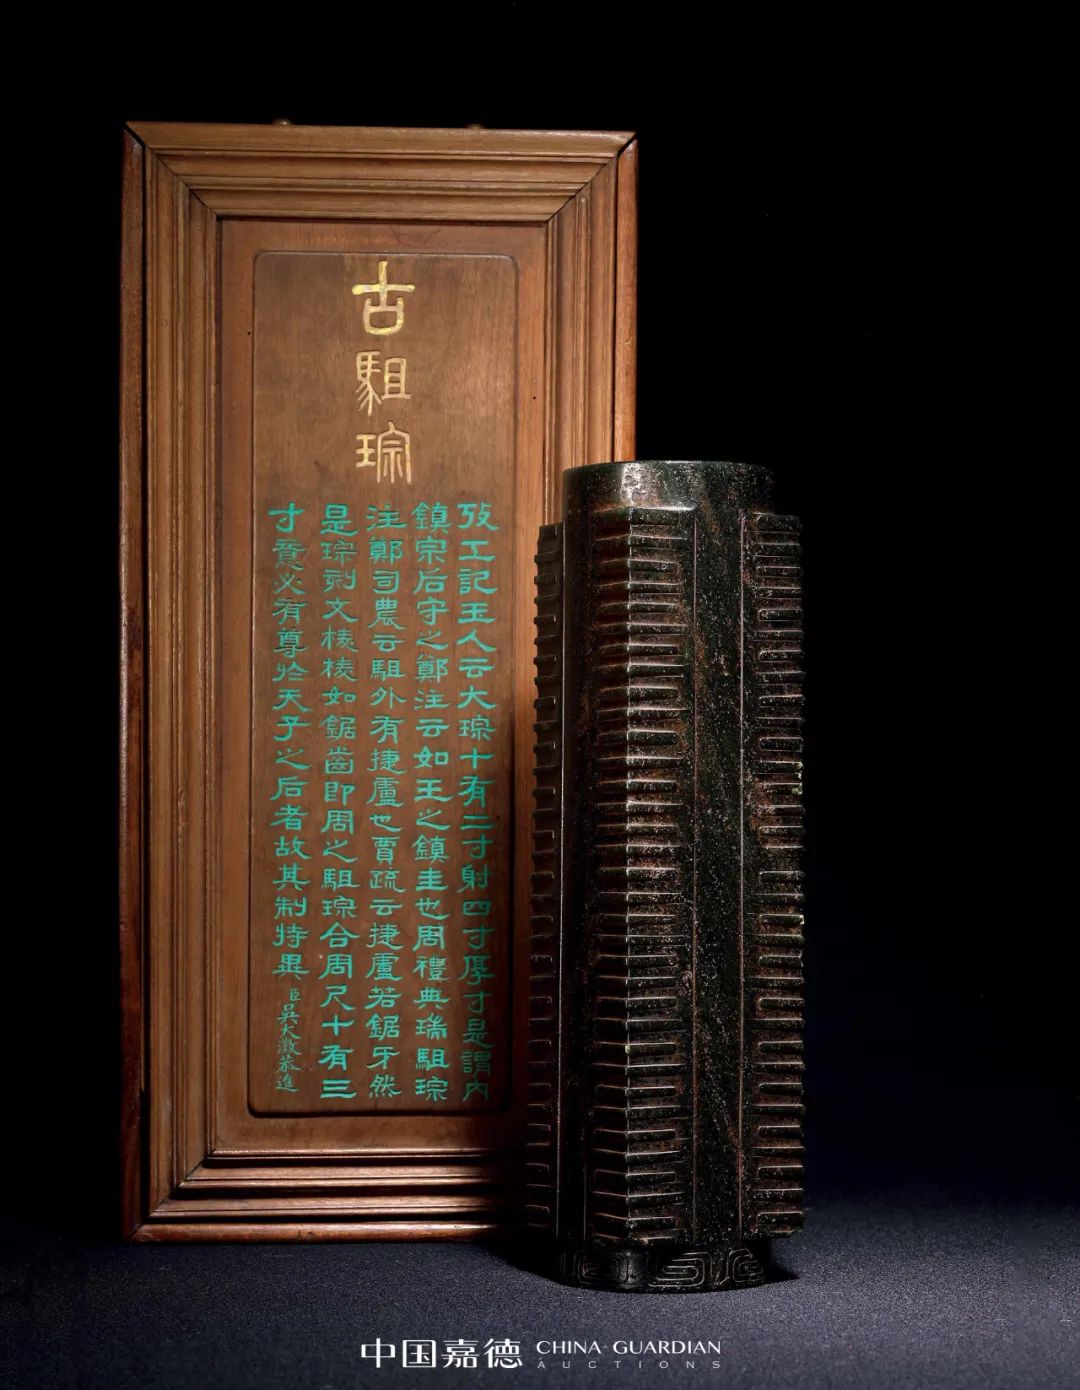 古駔琮
攷工記玉人云大琮十有二寸射四寸厚寸是謂內
鎮宗后守之鄭注云如王之鎮圭也周禮典瑞駔琮
注鄭司農云駔外有捷盧也賈疏云捷盧若鋸牙然
是琮刻文棱棱如鋸齒即周之駔琮合周尺十有三
寸意必有尊於天子之后者故其制特異
臣吳大澂恭進
中国嘉德 CHINA GUARDIAN
AUCTIONS